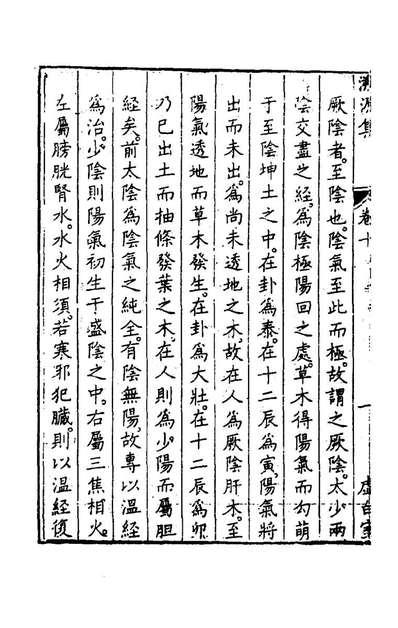 溯源集
卷十
一
虛白室
厥陰者。至陰也。陰氣至此而極。故謂之厥陰。太少兩
陰交盡之經。為陰極陽回之處。草木得陽氣而勾萌
于至陰坤土之中。在卦為泰。在十二辰為寅。陽氣將
出而未出。為尚未透地之木。故在人為厥陰肝木。至
陽氣透地而草木發生。在卦為大壯。在十二辰為卯
乃已出土而抽條發葉之木。在人則為少陽而屬胆
經矣。前太陰為陰氣之純全。有陰無陽。故專以溫經
為治。少陰則陽氣初生于盛陰之中。右屬三焦相火。
左屬膀胱腎水。水火相須。若寒邪犯臟。則以溫經復